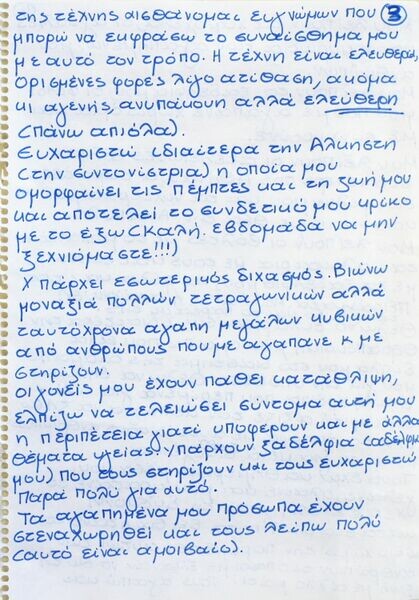 της τέχνης αισθάνομαι ευγνώμων που 3
μπορώ να εκφράσω το συναίσθημα μου
με αυτό τον τρόπο. Η τέχνη είναι ελεύθερη,
ορισμένες φορές λίγο ατίθαση, ακόμα
κι αγενής, ανυπάκουη αλλά ελεύθερη
(πάνω απ'όλα).
Ευχαριστώ ιδιαίτερα την Άλκηστη
(την συντονίστρια) η οποία μου
ομορφαίνει τις Πέμπτες και τη ζωή μου
και αποτελεί το συνδετικό μου κρίκο
με το έξω (Καλή εβδομάδα να μην
ξεχνιόμαστε!!!)
Υπάρχει εσωτερικός διχασμός. Βιώνω
μοναξιά πολλών τετραγωνικών αλλά
ταυτόχρονα αγάπη μεγάλων κυβικών
από ανθρώπους που με αγαπάνε κ με
στηρίζουν.
Οι γονείς μου έχουν πάθει κατάθλιψη,
ελπίζω να τελειώσει σύντομα αυτή μου
η περιπέτεια γιατί υποφέρουν και με άλλα
θέματα υγείας. Υπάρχουν ξαδέλφια (αδέλφια
μου) που τους στηρίζουν και τους ευχαριστώ
Πάρα πολύ για αυτό.
Τα αγαπημένα μου πρόσωπα έχουν
στεναχωρηθεί και τους λείπω πολύ
(αυτό είναι αμοιβαίο).